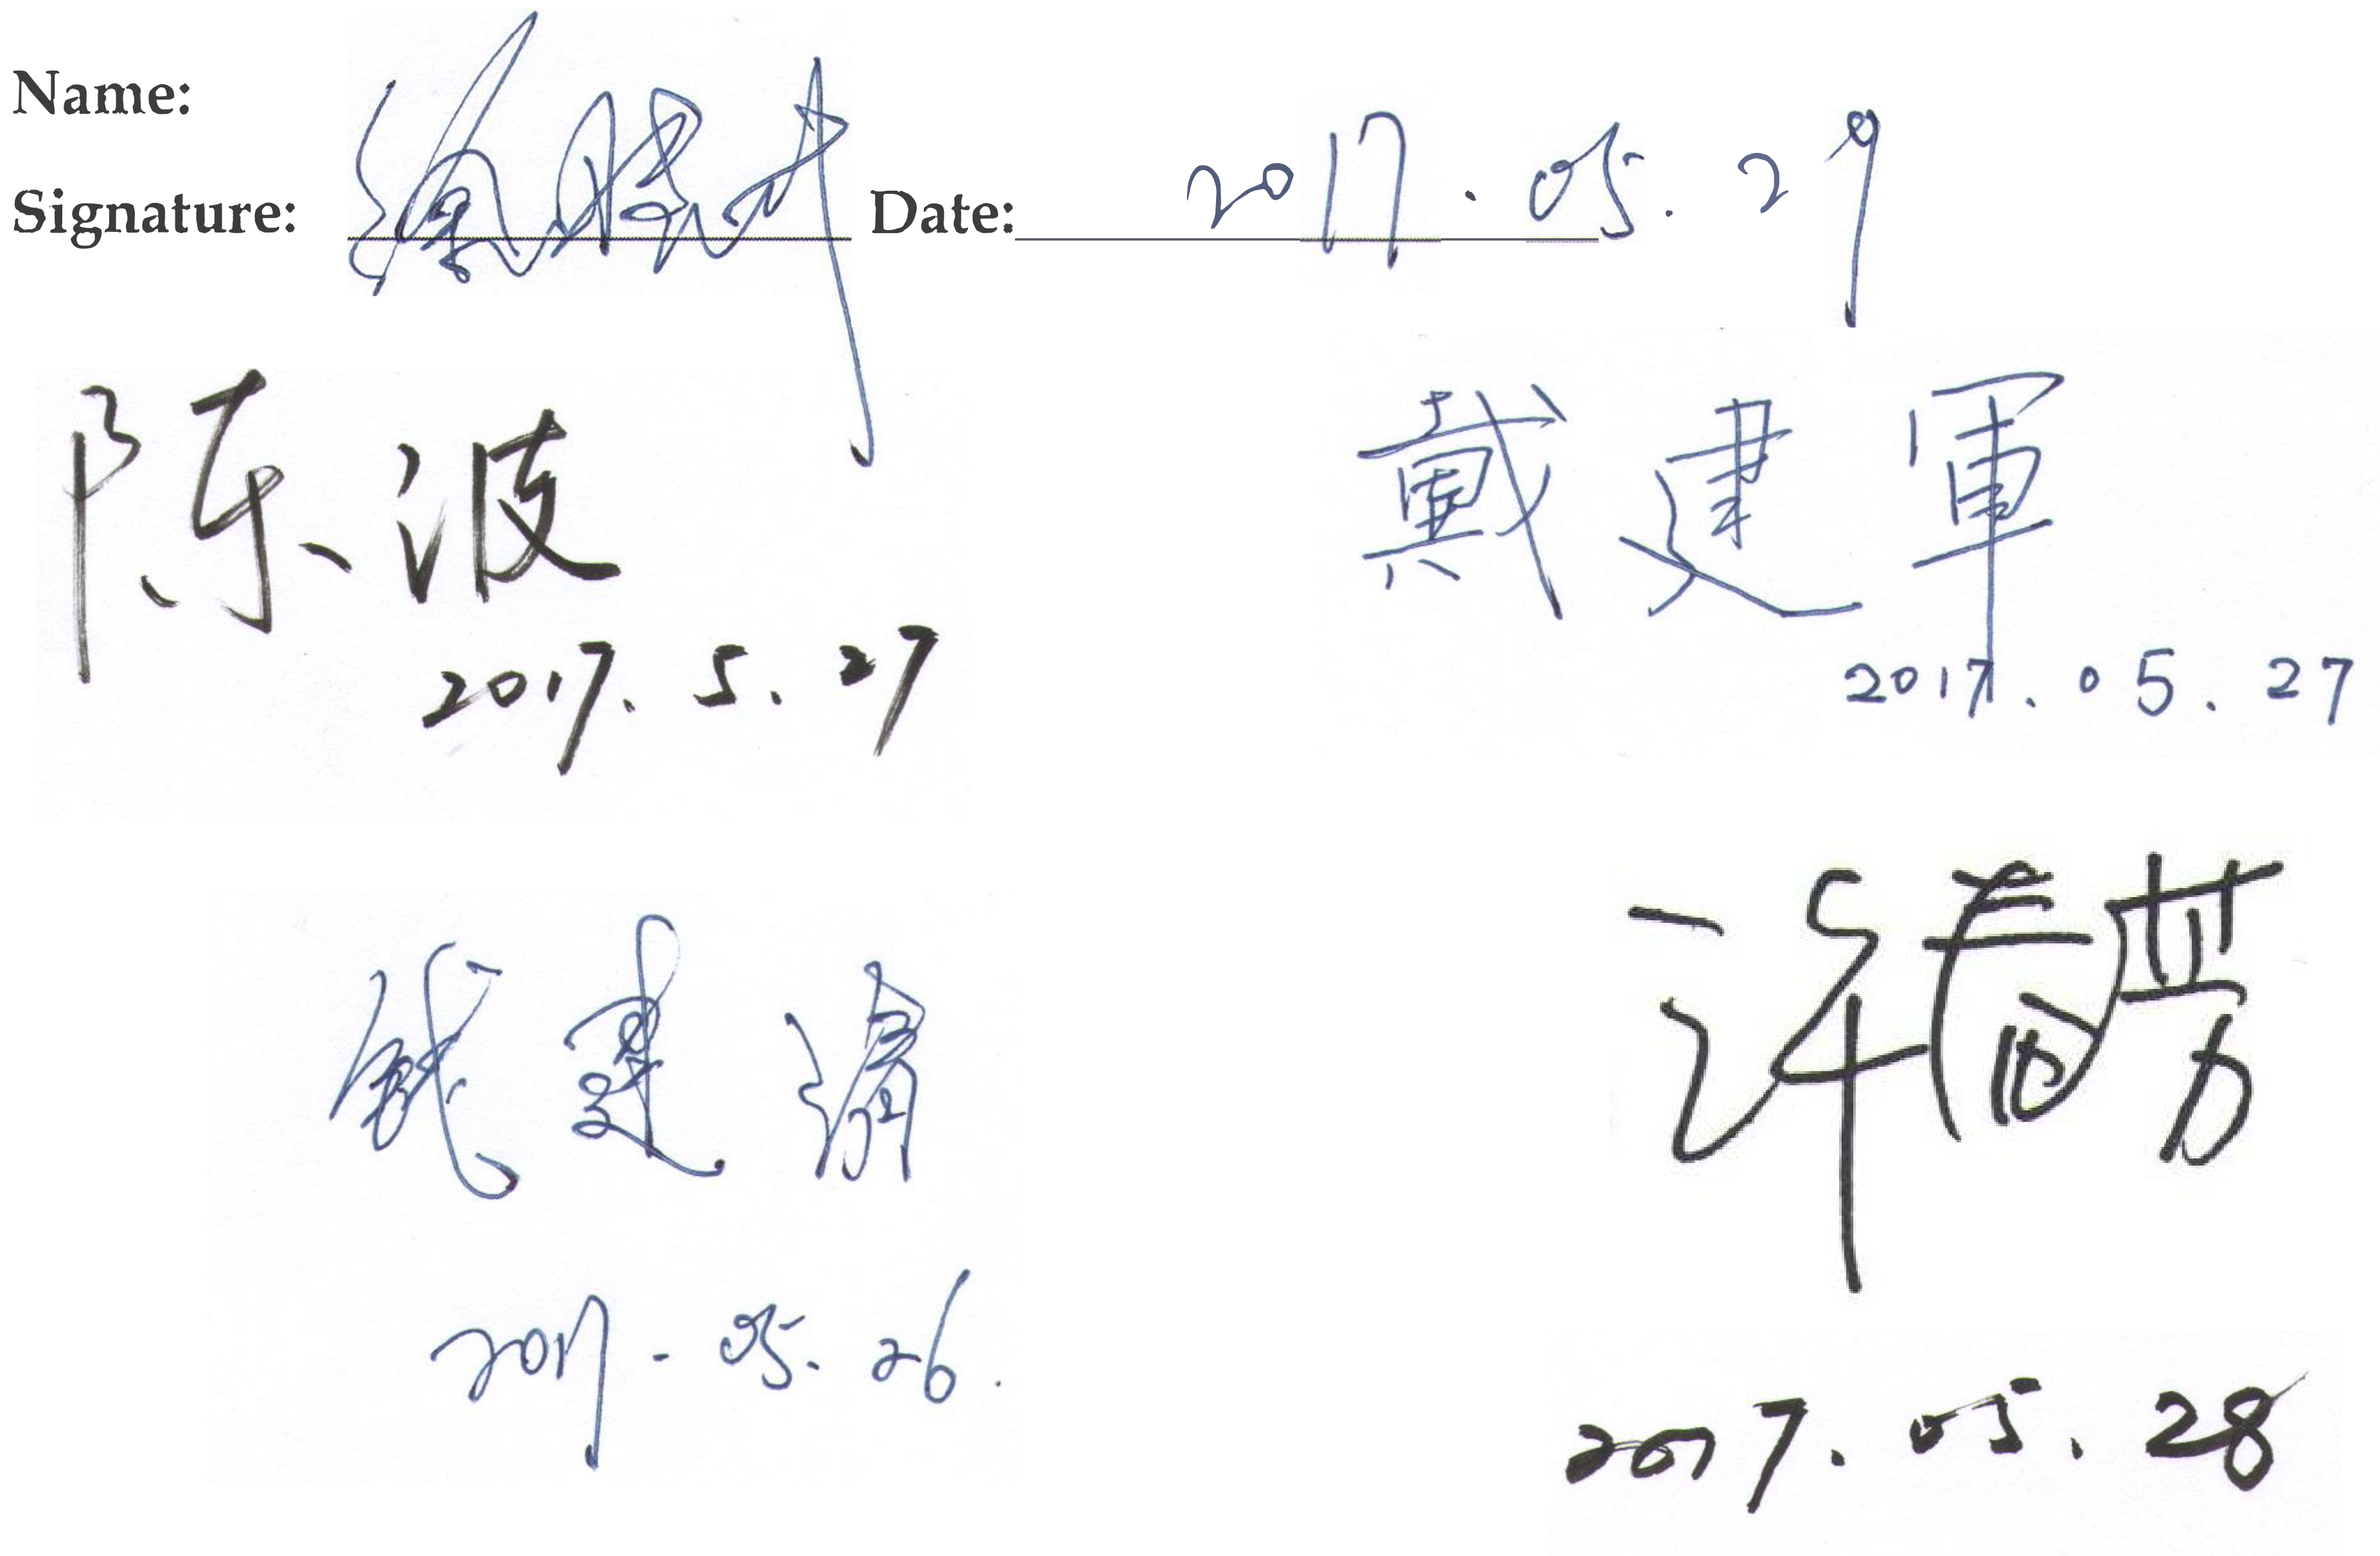 Name:
Signature: Date: 2017.05.29
陈波
2017.5.27
戴建軍
2017.05.27
钱建清
2017-05.26.
许春芳
2017.05.28